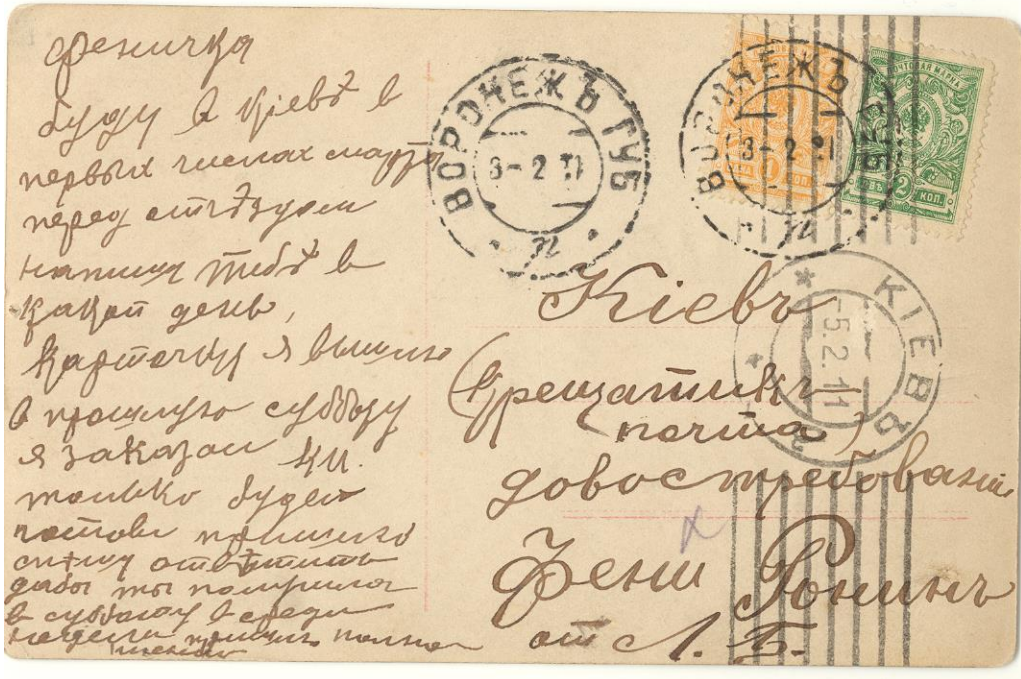 Феничка
буду в Кіевѣ в
первых числах марта
перед отъѣздом
напишу тебѣ в
какой день,
Карточку я вышлю
в прошлую субботу
я заказал
только будет
готови пришлю
спѣшу отвѣтить
дабы ты получила
в субботу в среди
недели
ВОРОНЕЖЪ ГУБ
3-2 11
ВОРОНЕЖЪ ГУБ
3-2 11
ПОЧТОВАЯ МАРКА
1 КОП.
2 КОП.
КІЕВЪ
-5.2.11
2
Кіевъ
(Крещатикъ
почта)
довостребованія
Фени Ронинъ
от Л. Б.